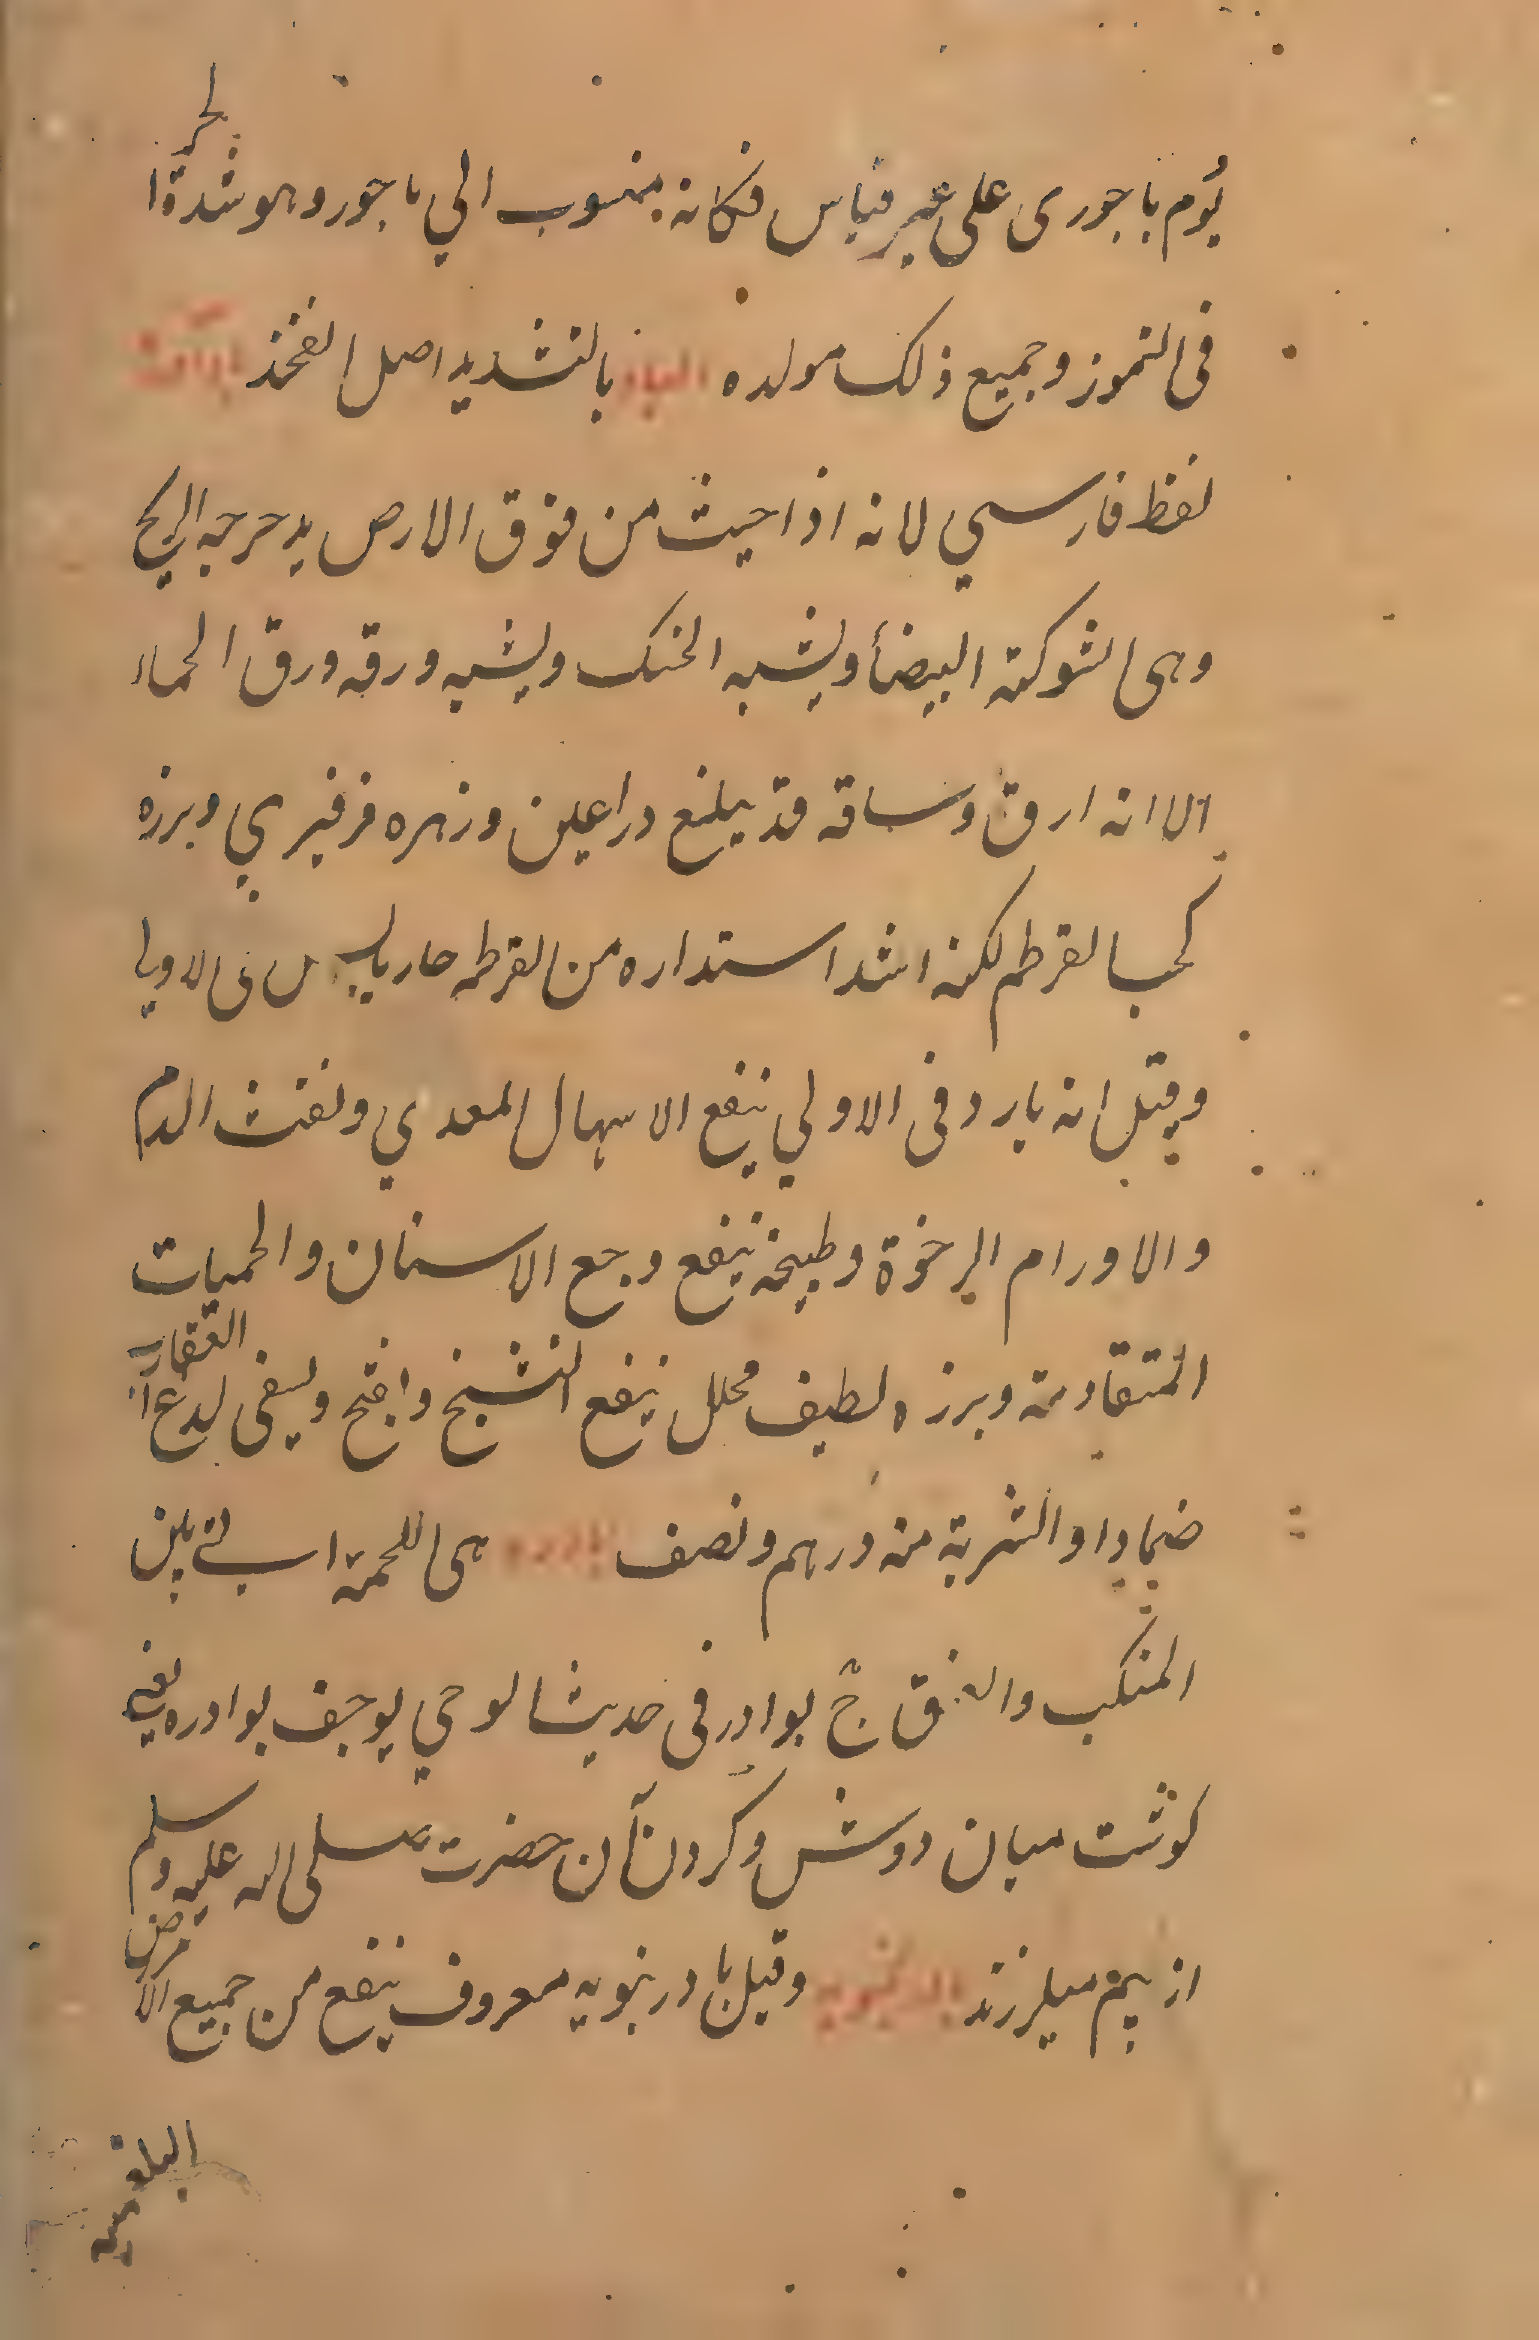 يوم باجورى على غير قياس فكانه منسوب الي باجور وهو شدة الحر
فى التموز وجميع ذلك مولده الباد بالتشديد اصل الفخذ
لفظ فارسي لانه اذا جيث من فوق الارص يدحرجه الريح
وهى الشوكته البيضأ ويشبه الخنك ويشبه ورقه ورق الحماء
الا انه ارق وساقه قد يبلغ دراعين وزهره فرفيري وبرزه
كحب القرطم لكنه اشد استداره من القرطم حار يابس فى الاولي
وقيل انه بارد فى الاولي ينفع الاسهال المعدي ونفث الدم
والاورام الرخوة وطبيخه ينفع وجع الاسنان والحميات
المتقادمة وبرزه لطيف محلل ينفع التشنج وافتح ويسقى لدغ العقارب
ضمادا والشربة منه درهم ونصف بادره هى اللحمة التي بين
المنكب والعنق ج بوادر فى حديث الوحي يوجف بوادره يعني
كوشت ميان دوش وكردن آن حضرت صلى اله عليه وسلم
از بيم ميلرزند بادرنبويه وقيل بادرنبويه معروف ينفع من جميع الامرض
البلغميه